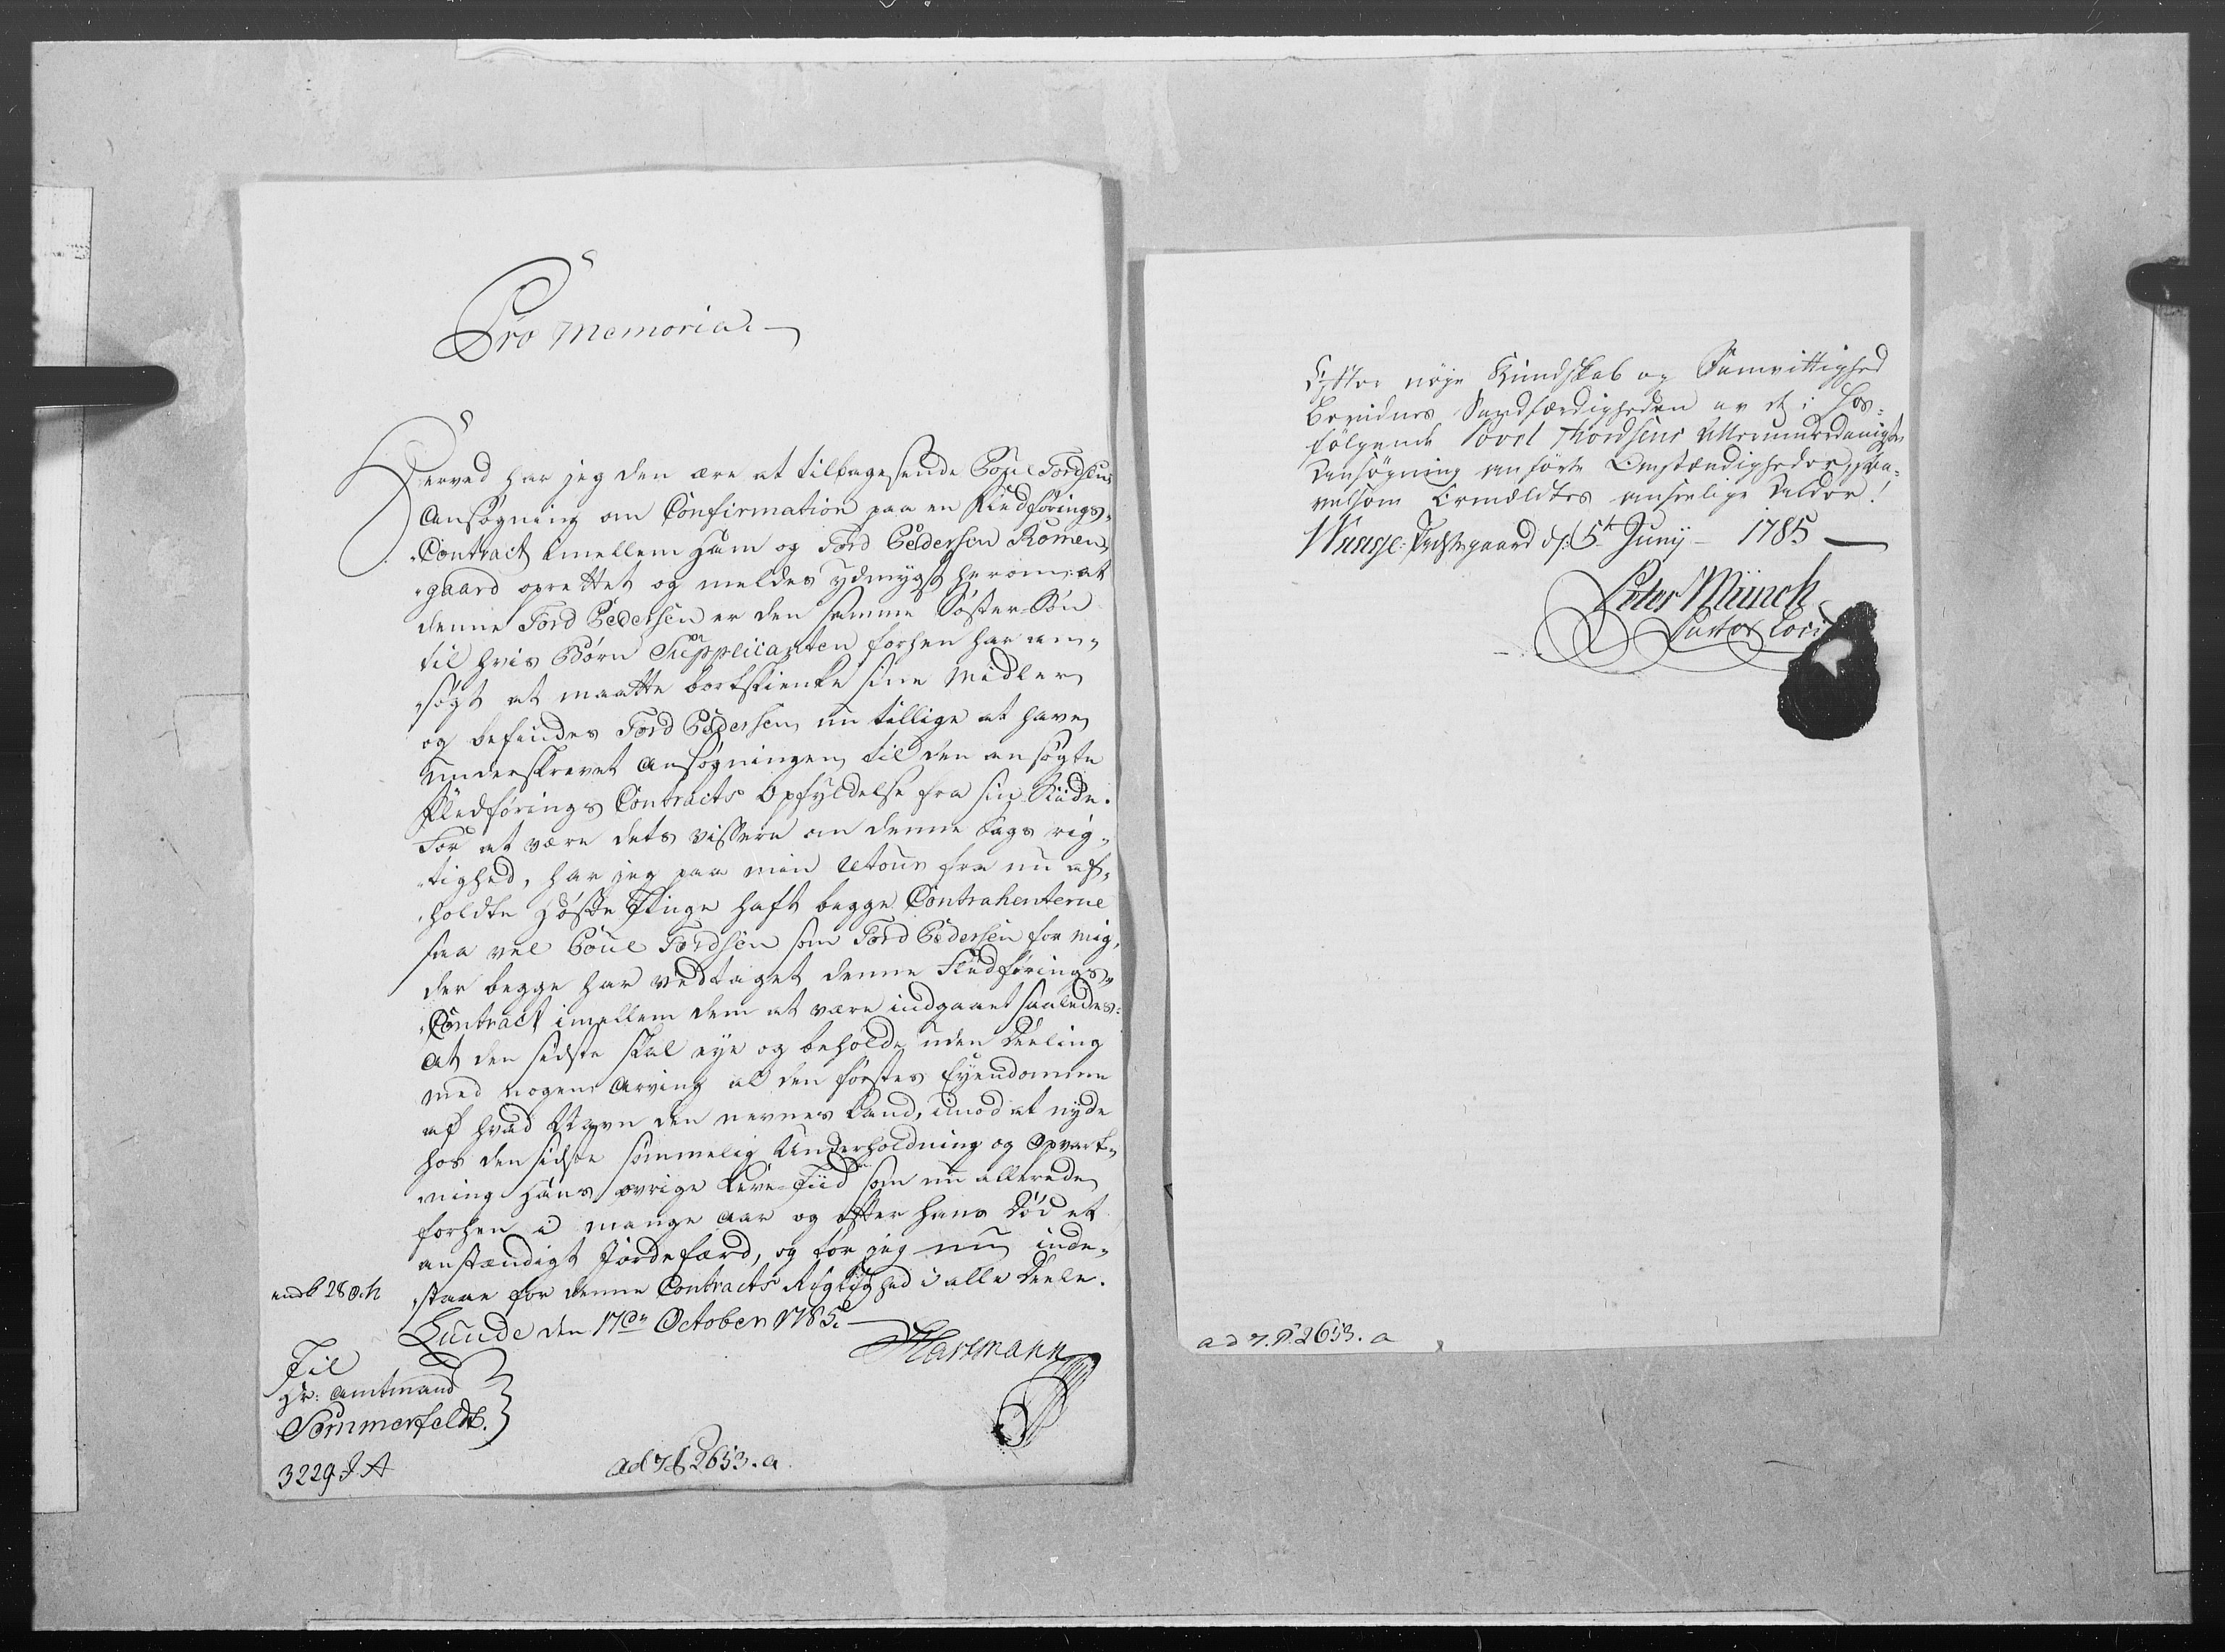 Pro Memoria.
Herved har jeg den ære at tilbagesende Poul Tordsens
Ansøgning om Confirmation paa en Fledførings-
Contract imellem ham og Tord Pedersen Romen-
gaard oprettet og meldes ydmygst herom at
denne Tord Pedersen er den samme Søster-Søn
til hvis Børn Supplicanten forhen har an-
søgt at maatte bortskienke sine Midler
og befindes Tord Pedersen nu tillige at have
underskrevet Ansøgningen til den ansøgte
Fledførings Contracts Opfyldelse fra sin Side.
For at være dets vissere om denne Sags rig-
tighed, har jeg paa min Retour fra nu af-
holdte Høste Tinge haft begge Contrahenterne
saa vel Poul Tordsen som Tord Pedersen for mig,
der begge har vedtaget denne Fledførings-
Contract imellem dem at være indgaaet saaledes:
at den sidste skal eye og beholde uden Deeling
med nogen Arving al den førstes Eyendomme
af hvad Navn den nevnes kand, imod at nyde
hos den sidste sømmelig Underholdning og Opvart-
ning hans øvrige Leve-Tiid som nu allerede
forhen i mange Aar og efter hans Død et
anstændigt Jordefærd, og tør jeg nu inde-
staae for denne Contracts Rigtighed i alle Deele.
Lunde den 17de October 1785.
Hartmann
Til
Hr: Amtmand
Sommerfeldt.
3229 J. A
ad 2653. a.
Efter nøye Kundskab og Samvittighed
Bevidnes Sandfærdigheden av de i hos-
følgende Povel Thordsens Allerunderdanigste
Ansøgning anførte Omstændigheder, saa-
velsom Ermældtes anseelige Alder!
Waage: Præstegaard d: 5t Juny 1785
Peter Münch
Pastor Loci
ad 2653. a